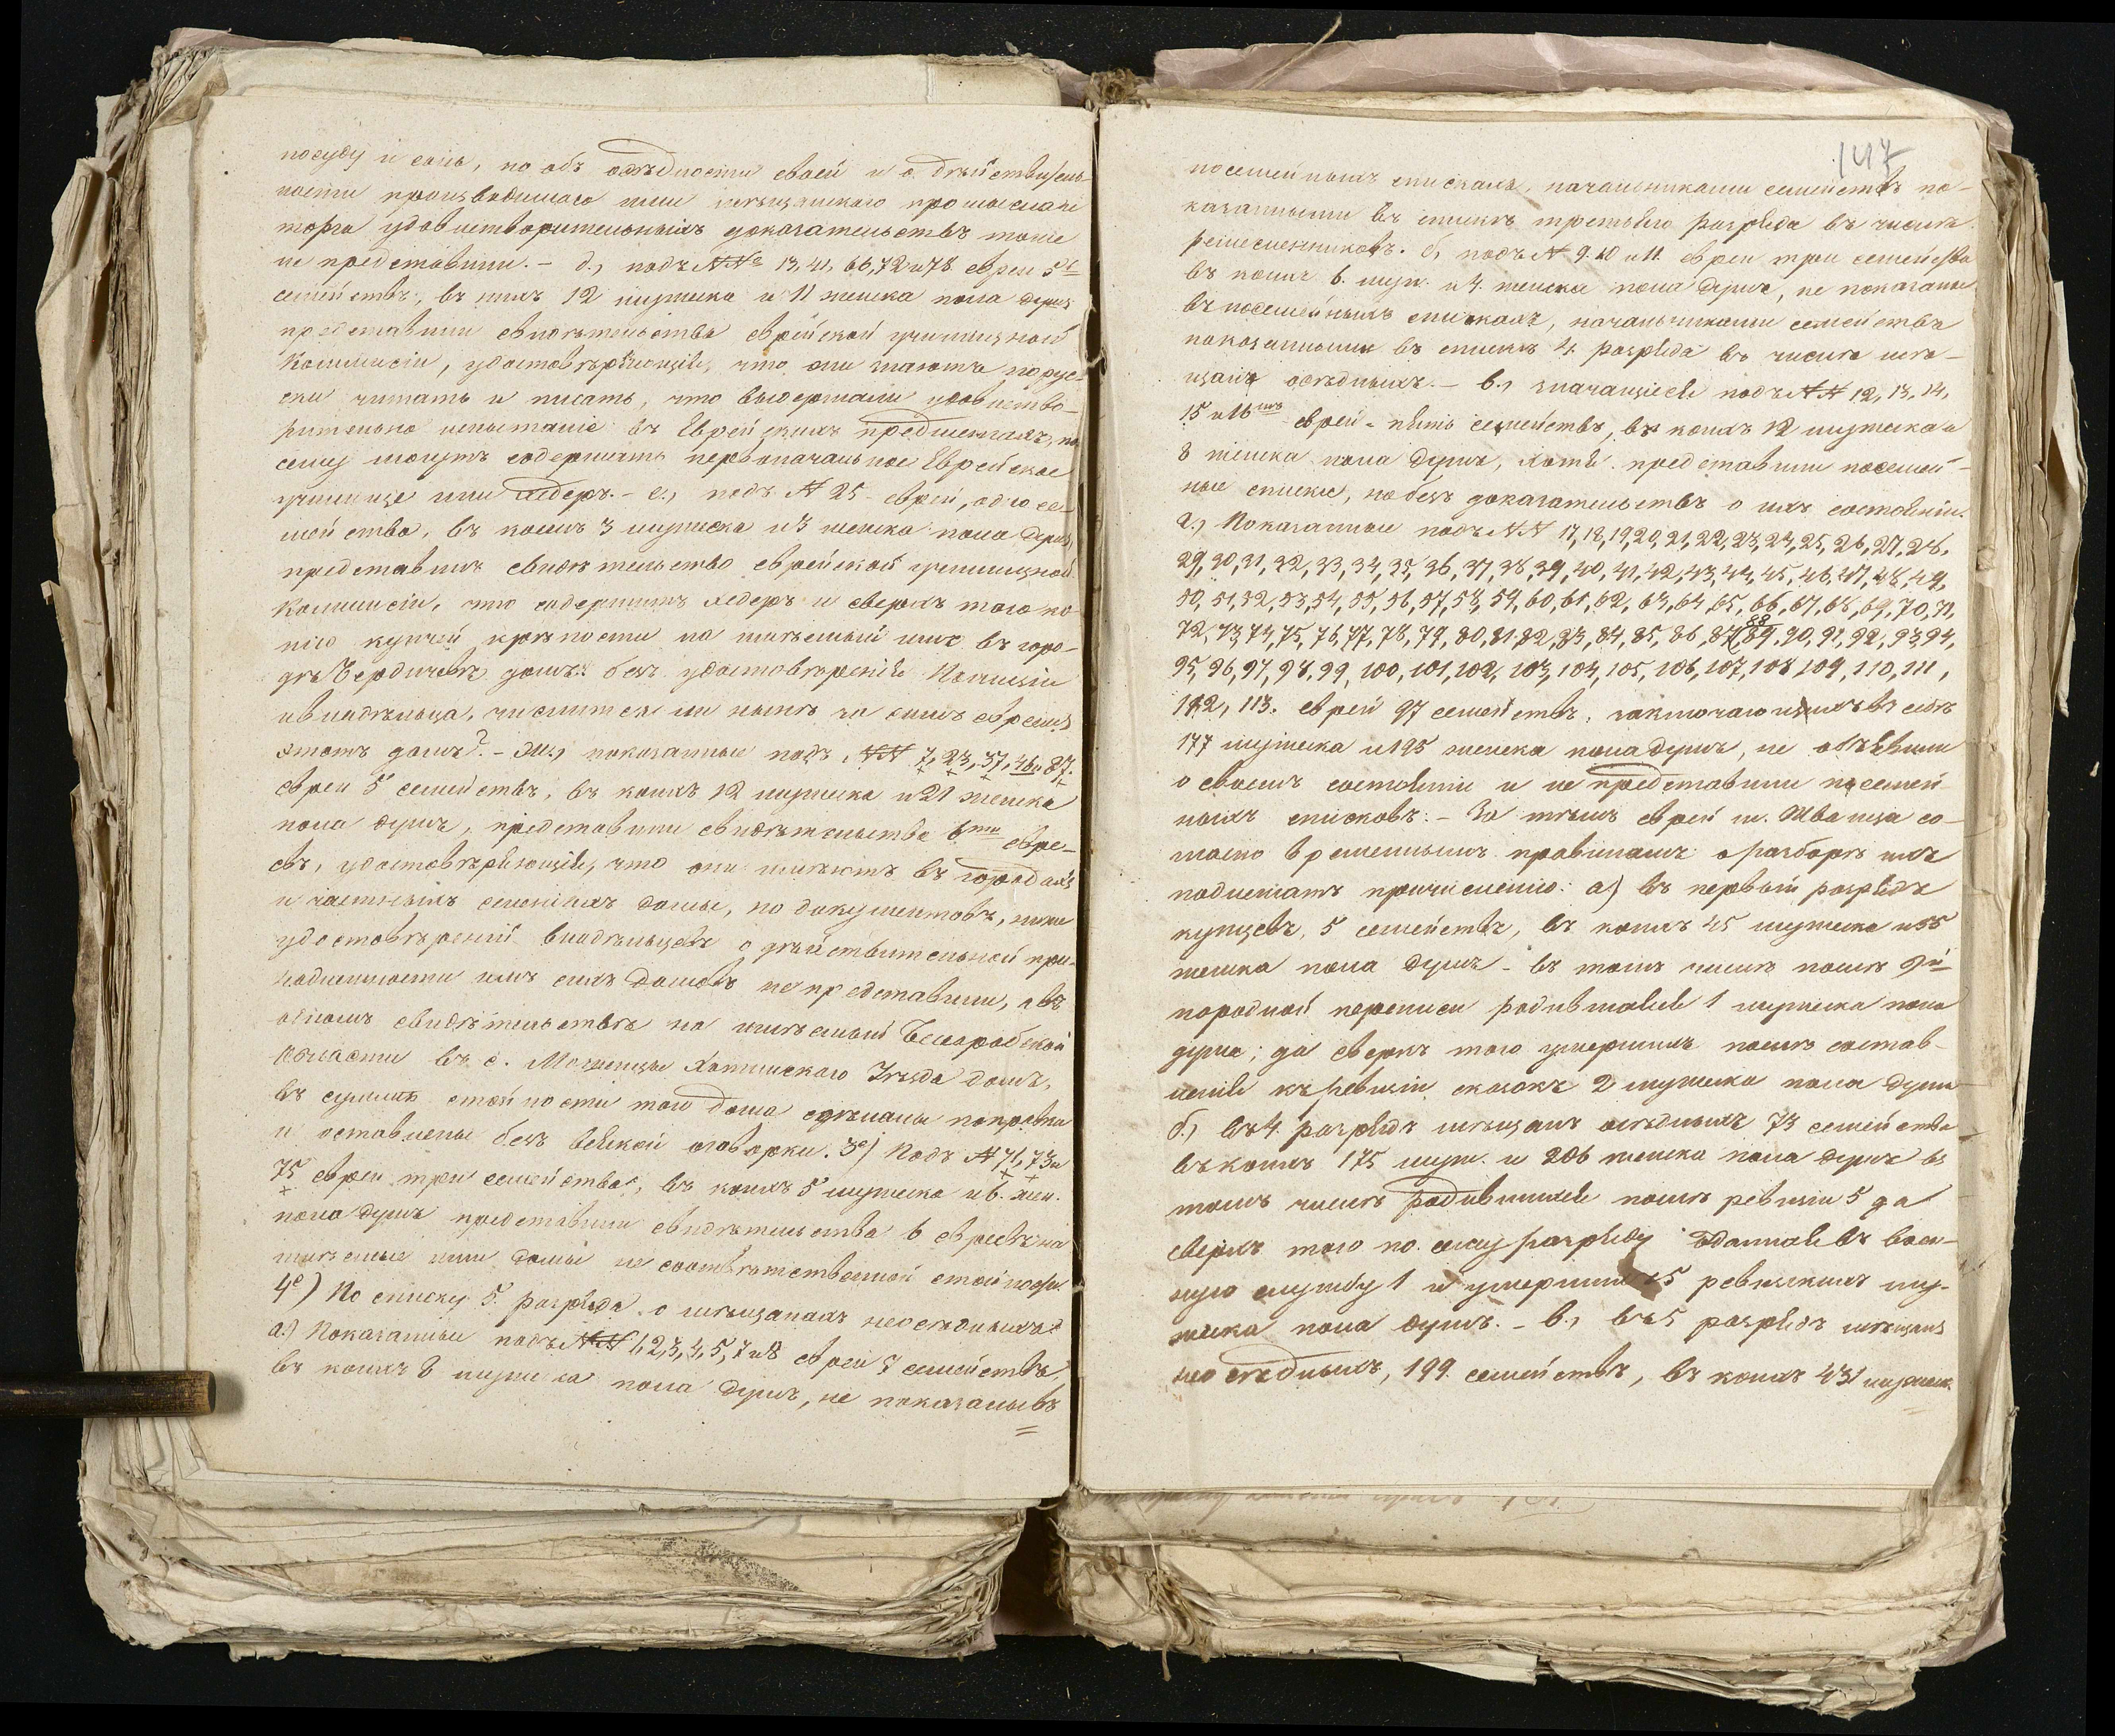 посуду и соль, но объ осѣдлости своей и о дѣйствитель-
ности производимаго ими мѣщанскаго промысла и
торга удовлетворительныхъ доказательствъ тоже
не представили. – д., подъ №№ 13, 41, 66, 72 и 78 евреи 5ть
семействъ, въ нихъ 12 мужеска и 11 женска пола душъ
представили свидѣтельства еврейской училищной
Коммисіи, удостовѣряющія, что они знаютъ порус-
ски читать и писать, что выдержали удовлетво-
рительно испытаніе въ Еврейскихъ предметахъ, по
сему могутъ содержать первоначальное Еврейское
училище или хедеръ. – е., подъ № 25 – еврей, одно се-
мейство, въ коемъ 3 мужеска и 3 женска пола душъ,
представилъ свидѣтельство еврейской училищной
Коммисіи, что содержитъ хедеръ и сверхъ того ко-
пію купчей крѣпости на имѣемый имъ въ горо-
дѣ Бердичевѣ домъ; безъ удостовѣренія Полиціи
и владѣльца, числится ли нынѣ за симъ евреемъ
этотъ домъ? – ж., показанные подъ №№ 7, 23, 37, 46 и 87.
евреи 5 семействъ, въ коихъ 12 мужеска и 21 женска
пола душъ, представили свидѣтельства 6ти евре-
евъ, удостовѣряющія, что они имѣютъ въ городахъ
и частныхъ селеніяхъ домы, но документовъ, или
удостовѣреній владѣльцевъ о дѣйствительной при-
надлежности имъ сихъ домовъ не представили, а въ
одномъ свидѣтельствѣ на имѣемый Бессарабской
области въ с. Хотинскаго Уѣзда домъ,
въ суммѣ стоимости того дома сдѣланы поправки
и оставлены безъ всякой оговорки. Зе) Подъ № 71, 73 и
75 евреи три семейства, въ коихъ 5 мужеска и 6. жен.
пола душъ представили свидѣтельства 6 евреевъ на
имѣемые ими домы не соотвѣтственной стоимости.
4е) По списку 5. разряда о мѣщанахъ неосѣдлыхъ:
а.) Показанные подъ №№ 1, 2, 3, 4, 5, 7 и 8 евреи 7 семействъ,
въ коихъ 8 мужеска пола душъ, не показаны въ
147
посемейныхъ спискахъ, начальниками семействъ по-
казанными въ спискѣ третьяго разряда въ числѣ
ремесленниковъ. б, подъ № 9. 10 и 11. евреи три семейства
въ коихъ 6. муж. и 4. женска пола душъ, не показаны
въ посемейныхъ спискахъ, начальниками семействъ
показанными въ спискѣ 4. разряда въ числѣ мѣ-
щанъ осѣдлыхъ. – в., значащіеся подъ №№ 12, 13, 14,
15 и 16мъ евреи – пять семействъ, въ коихъ 12 мужеска и
8 женска пола душъ, хотя представили посемей-
ные списки, но безъ доказательствъ о ихъ состояніи.
г., Показанные подъ №№ 17, 18, 19, 20, 21, 22, 23, 24, 25, 26, 27, 28,
29, 30, 31, 32, 33, 34, 35, 36, 37, 38, 39, 40, 41, 42, 43, 44, 45, 46, 47, 48, 49,
50, 51, 52, 53, 54, 55, 56, 57, 58, 59, 60, 61, 62, 63, 64, 65, 66, 67, 68, 69, 70, 71,
72, 73, 74, 75, 76, 77, 78, 79, 80, 81, 82, 83, 84, 85, 86, 87, 88 89, 90, 91, 92, 93, 94,
95, 96, 97, 98, 99, 100, 101, 102, 103, 104, 105, 106, 107, 108, 109, 110, 111,
112, 113. евреи 97 семействъ, заключающихъ въ себѣ
177 мужеска и 195 женска пола душъ, не объявили
о своемъ состояніи и не представили посемей-
ныхъ списковъ. – За тѣмъ евреи м. Жванца со-
гласно временнымъ правиламъ о разборѣ ихъ
подлежатъ причисленію: а) въ первый разрядъ
купцевъ, 5 семействъ, въ коихъ 45 мужеска и 55
женска пола душъ – въ томъ числѣ послѣ 9й
народной переписи родившаяся 1 мужеска пола
душа; да сверхъ того умершихъ послѣ состав-
ленія къ ревизіи сказокъ 2 мужеска пола души
б.) въ 4. разрядъ мѣщанъ осѣдлыхъ 73 семейства
въ коихъ 175 муж. и 206 женска пола душъ въ
томъ числѣ родившихся послѣ ревизіи 5 да
сверхъ того по сему разряду отданная въ воен-
ную службу 1 и умершихъ 15 ревизскихъ му-
жеска пола душъ. – в., въ 5 разрядъ мѣщанъ
неосѣдлыхъ, 199. семействъ, въ коихъ 431 мужеск.